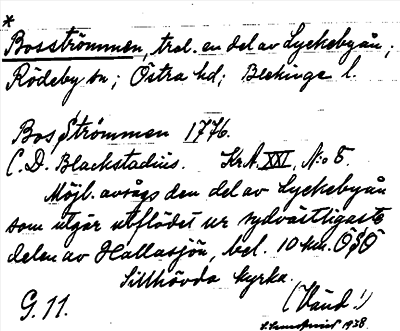 *
Bosströmmen, trol. en del av Lyckebyån;
Rödeby sn; Östra hd; Blekinge l.
Bos Strömmen 1776.
C. D. Blackstadius. KrA. XXI, N:o 5.
Möjl. avsågs den del av Lyckebyån
som utgör utflödet ur sydvästligaste
delen av Hallasjön, bel. 10 km. ÖSÖ
Sillhövda kyrka.
G. 11. (Vänd!)
1938